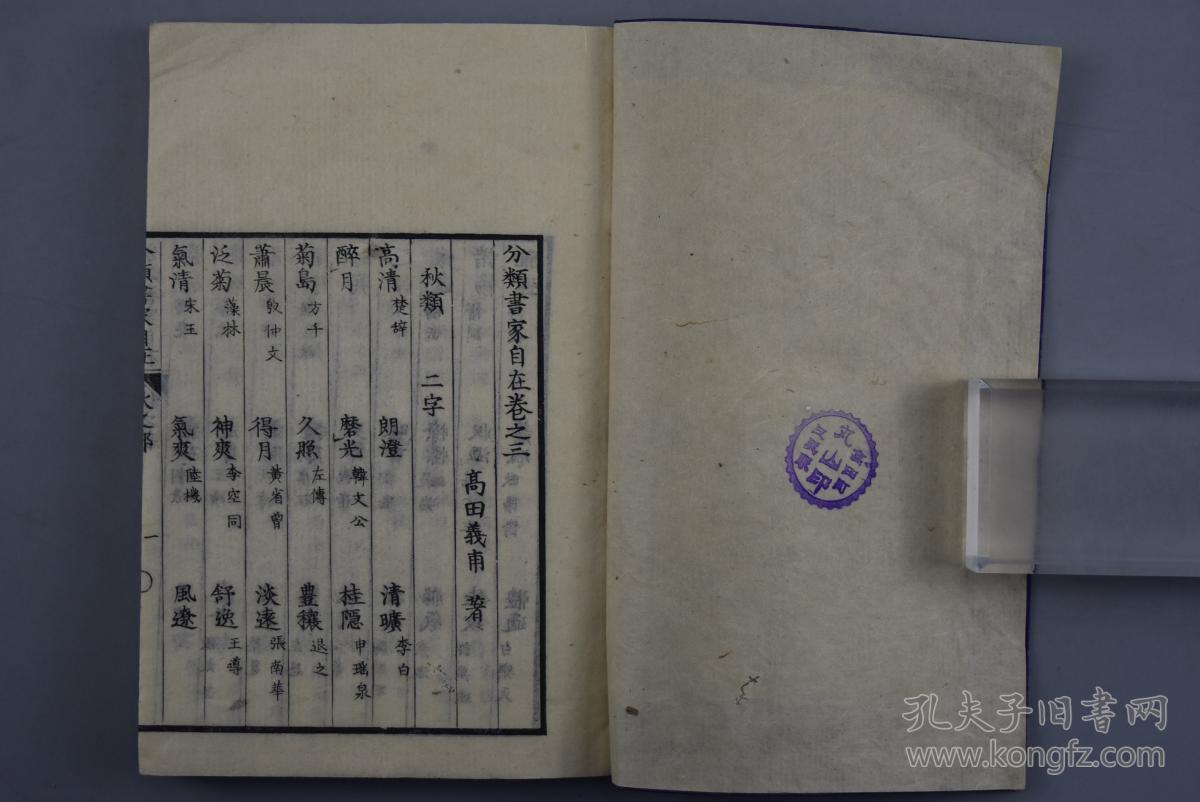 分類書家自在卷之三
髙田義甫 著
秋類 二字
高清 楚辞 朗澄 清曠 李白
醉月 磨光 韓文公 桂隠 申瑶泉
菊島 方千 久照 左傳 豊穰 退之
蕭晨 殷仲文 得月 黄省曾 淡遠 張南華
泛菊 藻林 神爽 李空同 舒逸 王導
氣清 宋玉 氣爽 陸機 風遼
一
孔夫子旧书网
www.kongfz.com